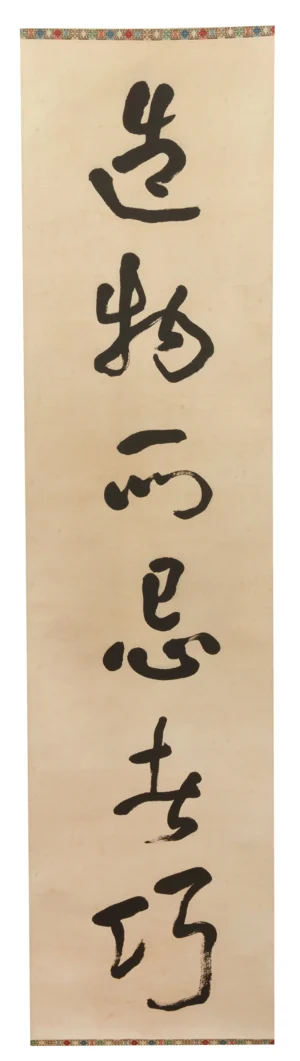 造物所忌者巧